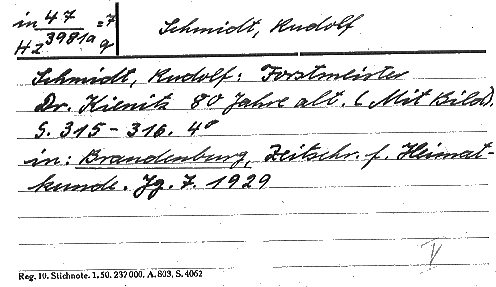 in 47 =7 Schmidt, Rudolf
HZ 3981a g
Schmidt, Rudolf: Forstmeister
Dr. Kienitz 80 Jahre alt. (Mit Bild).
S. 315-316. 4°
in: Brandenburg, Zeitschr. f. Heimat-
kunde. Jg. 7. 1929
V
Reg. 10. Stichnote. 1. 50. 237000. A. 803. S. 4062